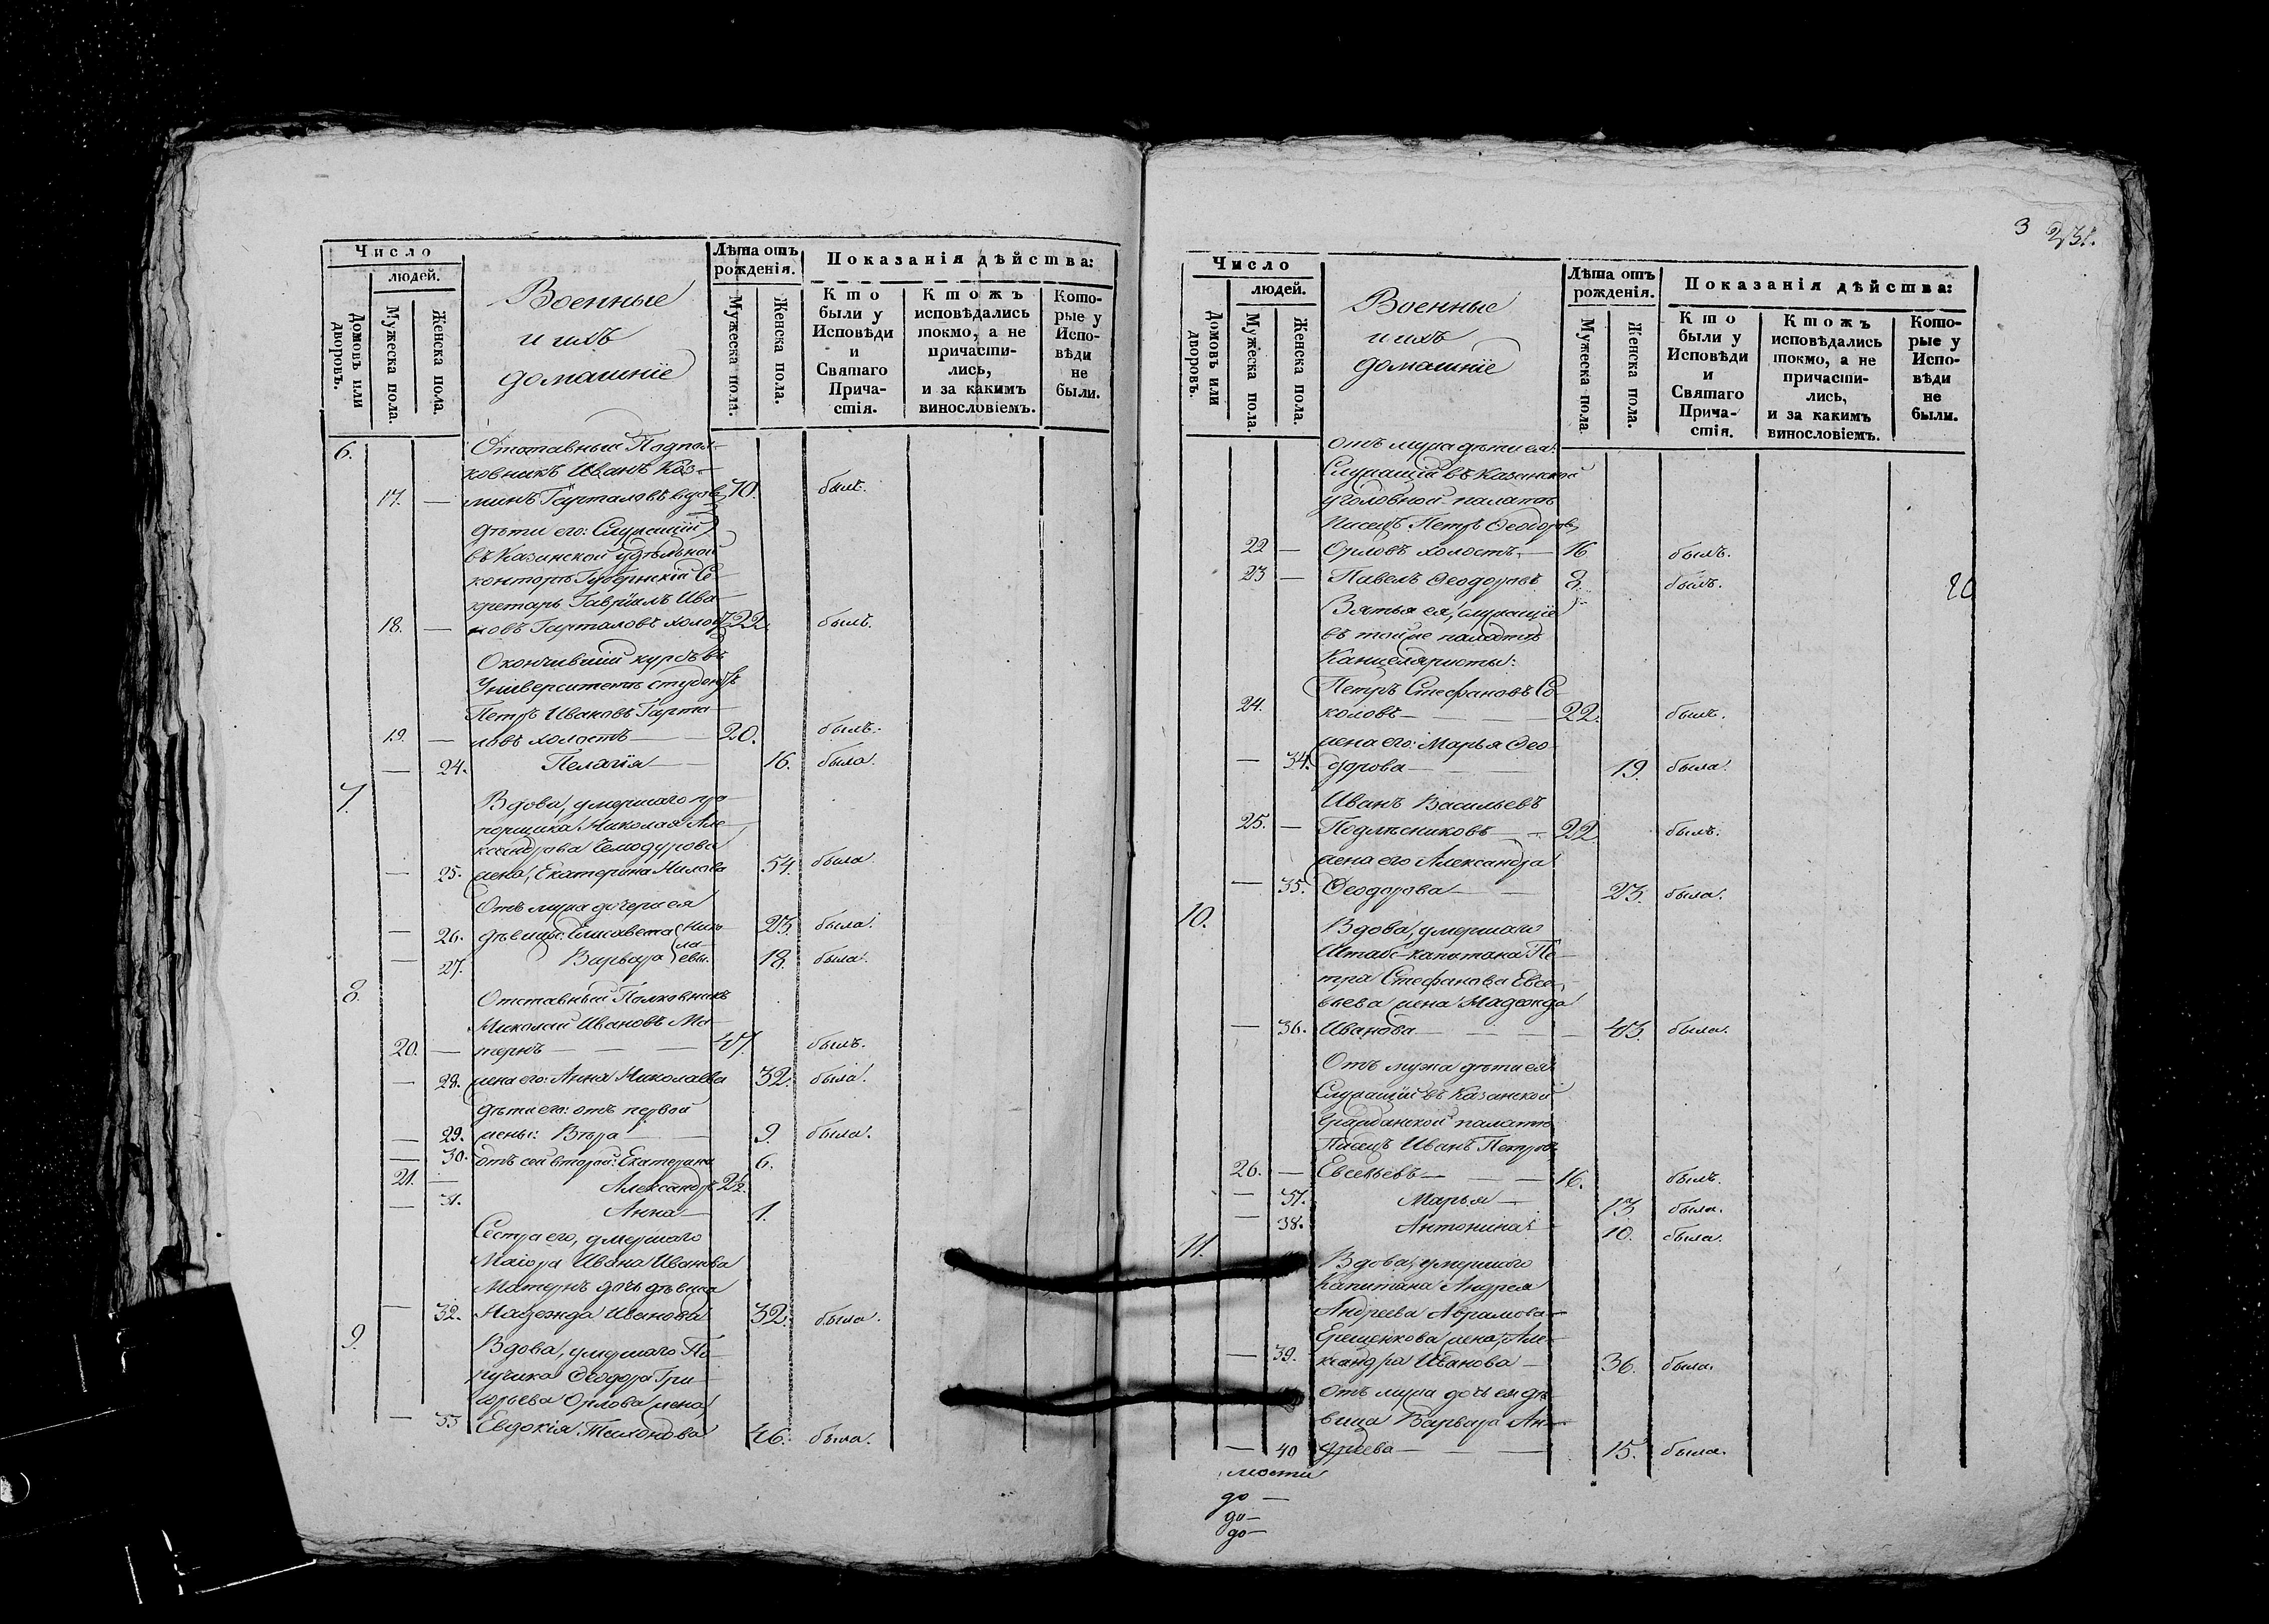 Число
людей.
Домовъ или дворовъ.
Мужеска пола.
Женска пола.
Военные
и ихъ
домашніе
Лѣта отъ
рожденія.
Мужеска пола.
Женска пола.
Показанія дѣйства:
Кто были у Исповѣди и Святаго Причастія.
Ктожъ исповѣдались токмо, а не причастились, и за какимъ винословіемъ.
Которые у Исповѣди не были.
6. Отставный Подпол-
ковникъ Иванъ Коз-
17. — минъ Гарталовъ вдовъ 70. былъ.
дѣти его: Служащій
въ Казанской удѣльной
конторѣ Губернскій Се-
кретарь Гавріилъ Ива-
18. — новъ Гарталовъ холостъ 22. былъ.
Окончившій курсъ въ
Университетѣ студентъ
Петръ Ивановъ Гарта-
19. — ловъ холостъ — 20. былъ.
— 24. Пелагія — 16. была.
7. Вдова, умершаго пра-
порщика Николая Але-
ксандрова Чемодурова
— 25. жена, Екатерина Нилова 54. была
Отъ мужа дочери ея
— 26. дѣвицы: Елисавета Нико- 23. была.
— 27. Варвара лаевы. 18. была.
8. Отставный Полковникъ
Николай Ивановъ Ма-
20. — тернъ — — — 47. былъ.
— 28. жена его: Анна Николаева 32. была.
дѣти его: отъ первой
— 29. жены: Вѣра — 9. была.
— 30. отъ сей второй: Екатерина 6.
21. — Александръ 2½.
— 31. Анна — 1.
Сестра его, умершаго
Маіора Ивана Иванова
Матернъ дочь дѣвица
— 32. Надежда Иванова 32. была.
9. Вдова, умершаго По-
ручика Ѳеодора Гри-
горьева Орлова жена,
— 33 Евдокія Тихонова 46. была.
3 231.
Число
людей.
Домовъ или дворовъ.
Мужеска пола.
Женска пола.
Военные
и ихъ
домашніе
Лѣта отъ
рожденія.
Мужеска пола.
Женска пола.
Показанія дѣйства:
Кто были у Исповѣди и Святаго Причастія.
Ктожъ исповѣдались токмо, а не причастились, и за какимъ винословіемъ.
Которые у Исповѣди не были.
отъ мужа дѣти ея:
Служащій въ Казанской
уголовной палатѣ
писецъ Петръ Ѳеодоровъ
22 — Орловъ холостъ. — 16 былъ.
23 — Павелъ Ѳеодоровъ 8. былъ.
Зятья ея, служащіе
въ той же палатѣ
Канцеляристы:
Петръ Стефановъ Со-
24. коловъ — — — 22. былъ.
жена его: Марья Ѳео-
— 34. дорова — 19. была.
Иванъ Васильевъ
25. — Подлѣсниковъ — 22 былъ.
жена его Александра
— 35. Ѳеодорова — 23. была.
10. Вдова, умершаго
Штабс-капитана Пе-
тра Стефанова Евсе-
вьева жена Надежда
— 36. Иванова — — — 43. была.
Отъ мужа дѣти ея:
Служащій въ Казанской
Гражданской палатѣ
Писецъ Иванъ Петровъ
26. — Евсевьевъ — — 16. былъ.
— 37. Марья — 13 была.
— 38. Антонина 10. была.
11. Вдова, умершаго
Капитана Андрея
Андреева Аврамова-
Ерещенкова жена, Але-
— 39. ксандра Иванова — 36. была.
отъ мужа дочь ея дѣ-
вица Варвара Ан-
— 40 дреева — — 15. была.
мости
до —
до —
до —